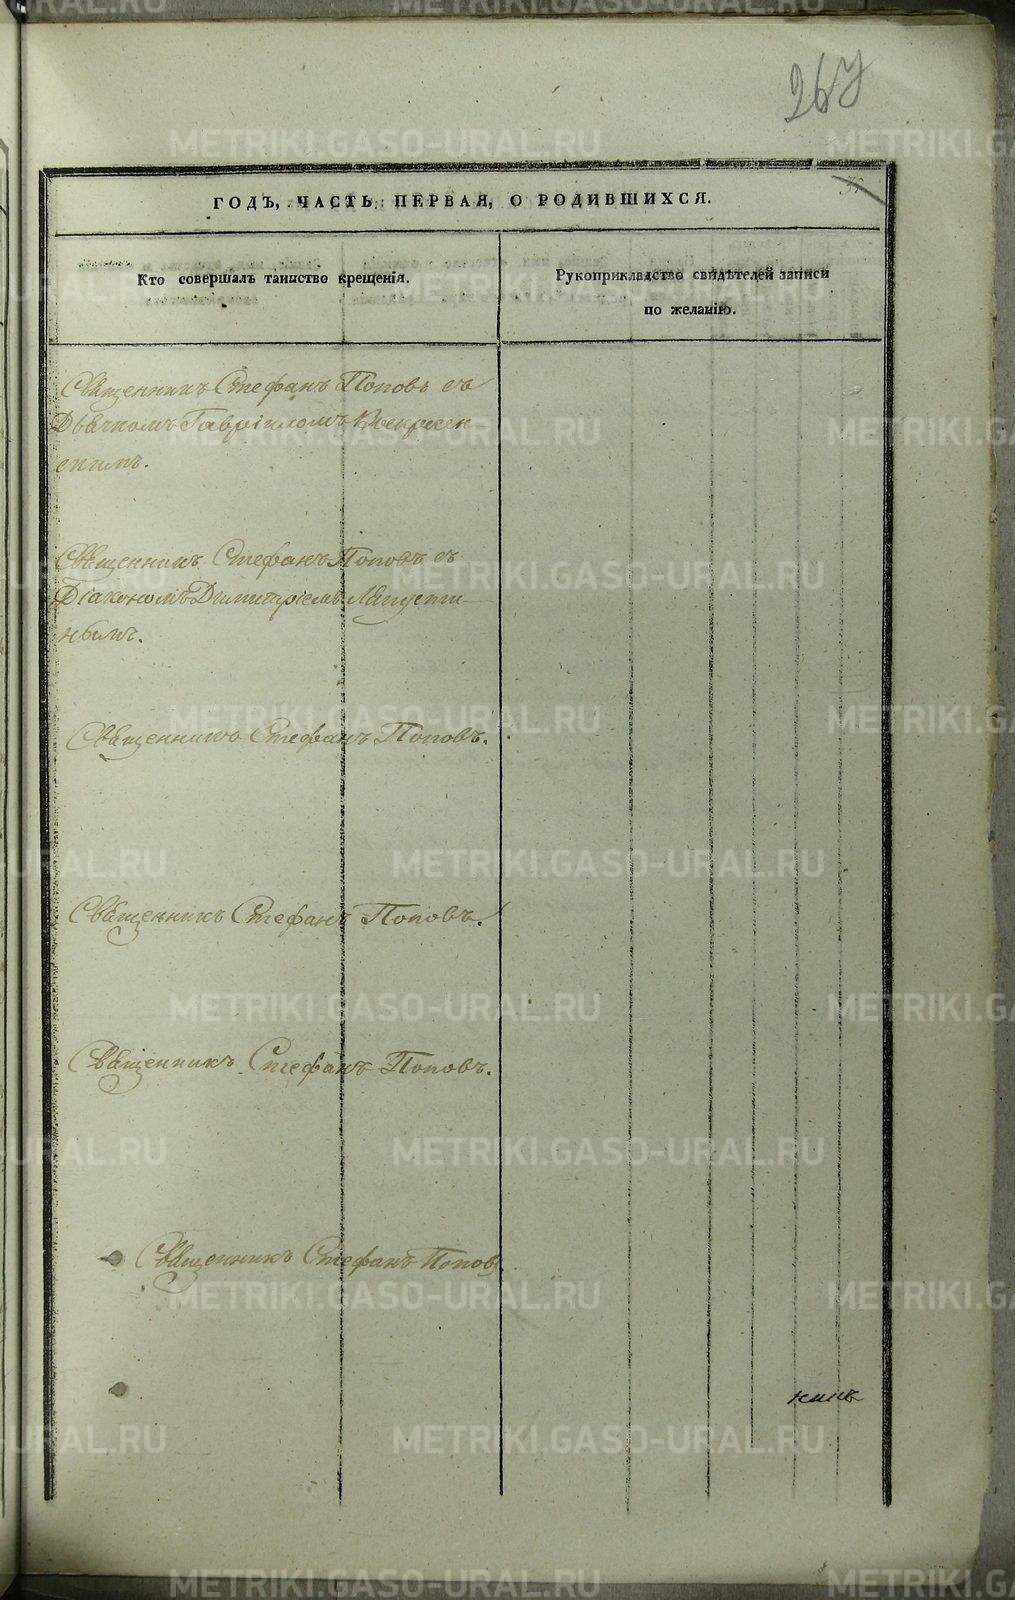 267
ГОДЪ, ЧАСТЬ ПЕРВАЯ, О РОДИВШИХСЯ.
Кто совершалъ таинство крещенія.
Рукоприкладство свидѣтелей записи
по желанію.
Священникъ Стефанъ Поповъ съ
Дьячкомъ Гавріиломъ Воскресен
скимъ.
Священникъ Стефанъ Поповъ съ
Діакономъ Димитріемъ
нымъ.
Священникъ Стефанъ Поповъ.
Священникъ Стефанъ Поповъ.
Священникъ Стефанъ Поповъ.
Священникъ Стефанъ Поповъ
METRIKI.GASO-URAL.RU